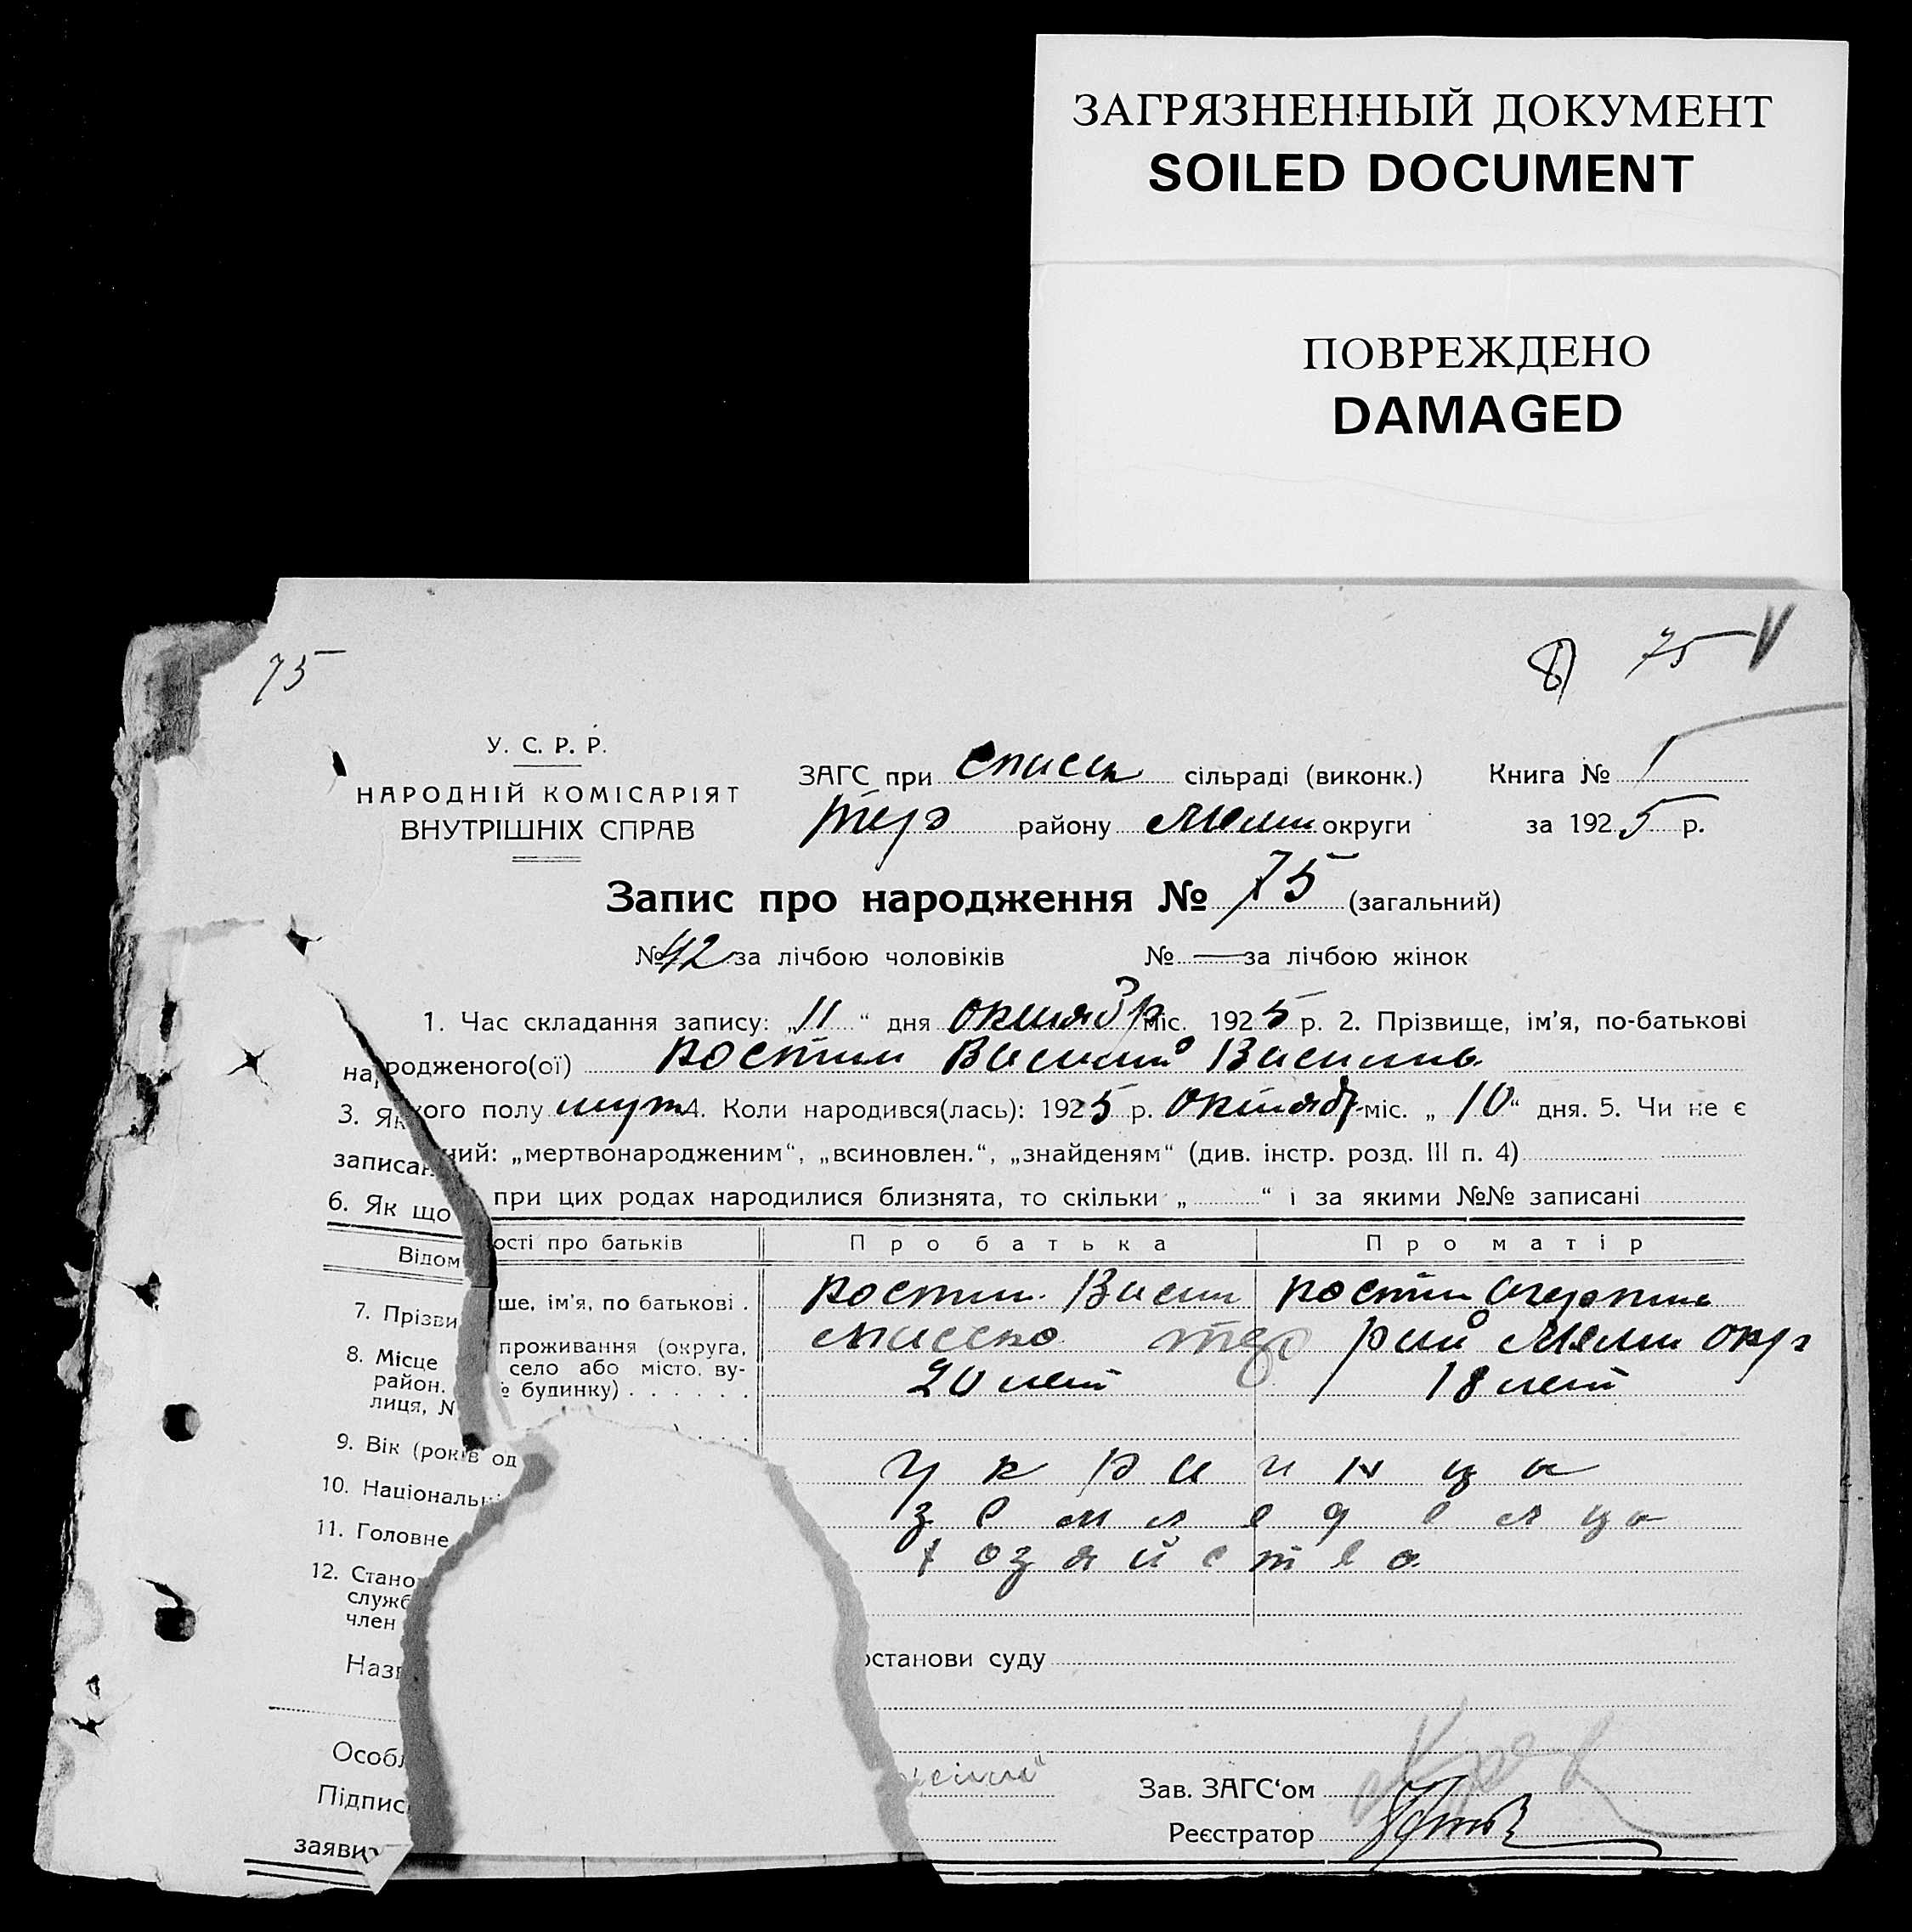 ЗАГРЯЗНЕННЫЙ ДОКУМЕНТ
SOILED DOCUMENT
ПОВРЕЖДЕНО
DAMAGED
75
75 V
У. С. Р. Р.
НАРОДНІЙ КОМІСАРІЯТ
ВНУТРІШНІХ СПРАВ
ЗАГС при сільраді (виконк.) Книга № 1
району округи за 1925 р.
Запис про народження № 75 (загальний)
№ 42 за лічбою чоловіків № — за лічбою жінок
1. Час складання запису: „11“ дня октябр міс. 1925 р. 2. Прізвище, ім'я, по-батькові
народженого(ої) Костин Василий Василь
3. Якого полу муж 4. Коли народився(лась): 1925 р. октябр міс. „10“ дня. 5. Чи не є
записаний: „мертвонародженим“, „всиновлен.“, „знайденям“ (див. інстр. розд. III п. 4)
6. Як що при цих родах народилися близнята, то скільки „ “ і за якими №№ записані
Відомості про батьків Про батька Про матір
7. Прізвище, ім'я, по батькові . Костин Васил Костин
8. Місце проживання (округа,
район. село або місто, ву-
лиця, № будинку) . . . . . .
окр
20 лет 18 лет
9. Вік (років од
10. Національн украинца
11. Головне земледельца
12. Стано хозяйство
служб
член
Назв останови суду
Особл
Підпис Зав. ЗАГС'ом
заяви Реєстратор